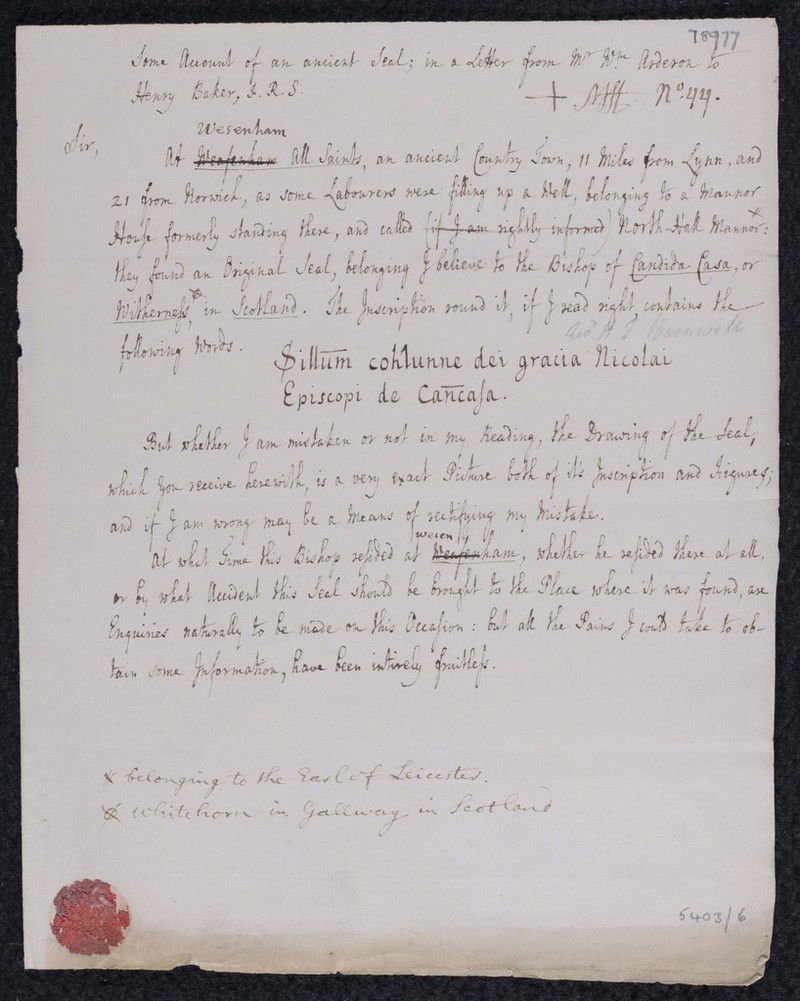 78977
Some Account of an ancient Seal; in a Letter from Mr Wm Arderon to
Henry Baker, F.R.S.
No: 44.
Wesenham
Sir,
At Weasenham All Saints, an ancient Country Town, 11 Miles from Lynn, and
21 from Norwich, as some Labourers were filling up a Well, belonging to a Mannor
House formerly standing there, and called (if I am rightly informed) North-Hall Mannor:
they found an Original Seal, belonging I believe to the Bishop of Candida Casa, or
Witherness, in Scotland. The Inscription round it, if I read right, contains the
following Words.
Sillum cohlunne dei gracia Nicolai
Episcopi de Cancasa.
But whether I am mistaken or not in my Reading, the Drawing of the Seal,
which You receive herewith, is a very exact Picture both of it's Inscription and Figures;
and if I am wrong may be a Means of rectifying my Mistake.
wesen
At what Time this Bishop resided at Weasenham, whether he resided there at all,
or by what Accident this Seal should be brought to the Place where it was found, are
Enquiries naturally to be made on this Occasion: but all the Pains I could take to ob-
tain some Information, have been intirely fruitless.
x belonging to the Earl of Leicester.
x Whitehorn in Gallway in Scotland
5403/6